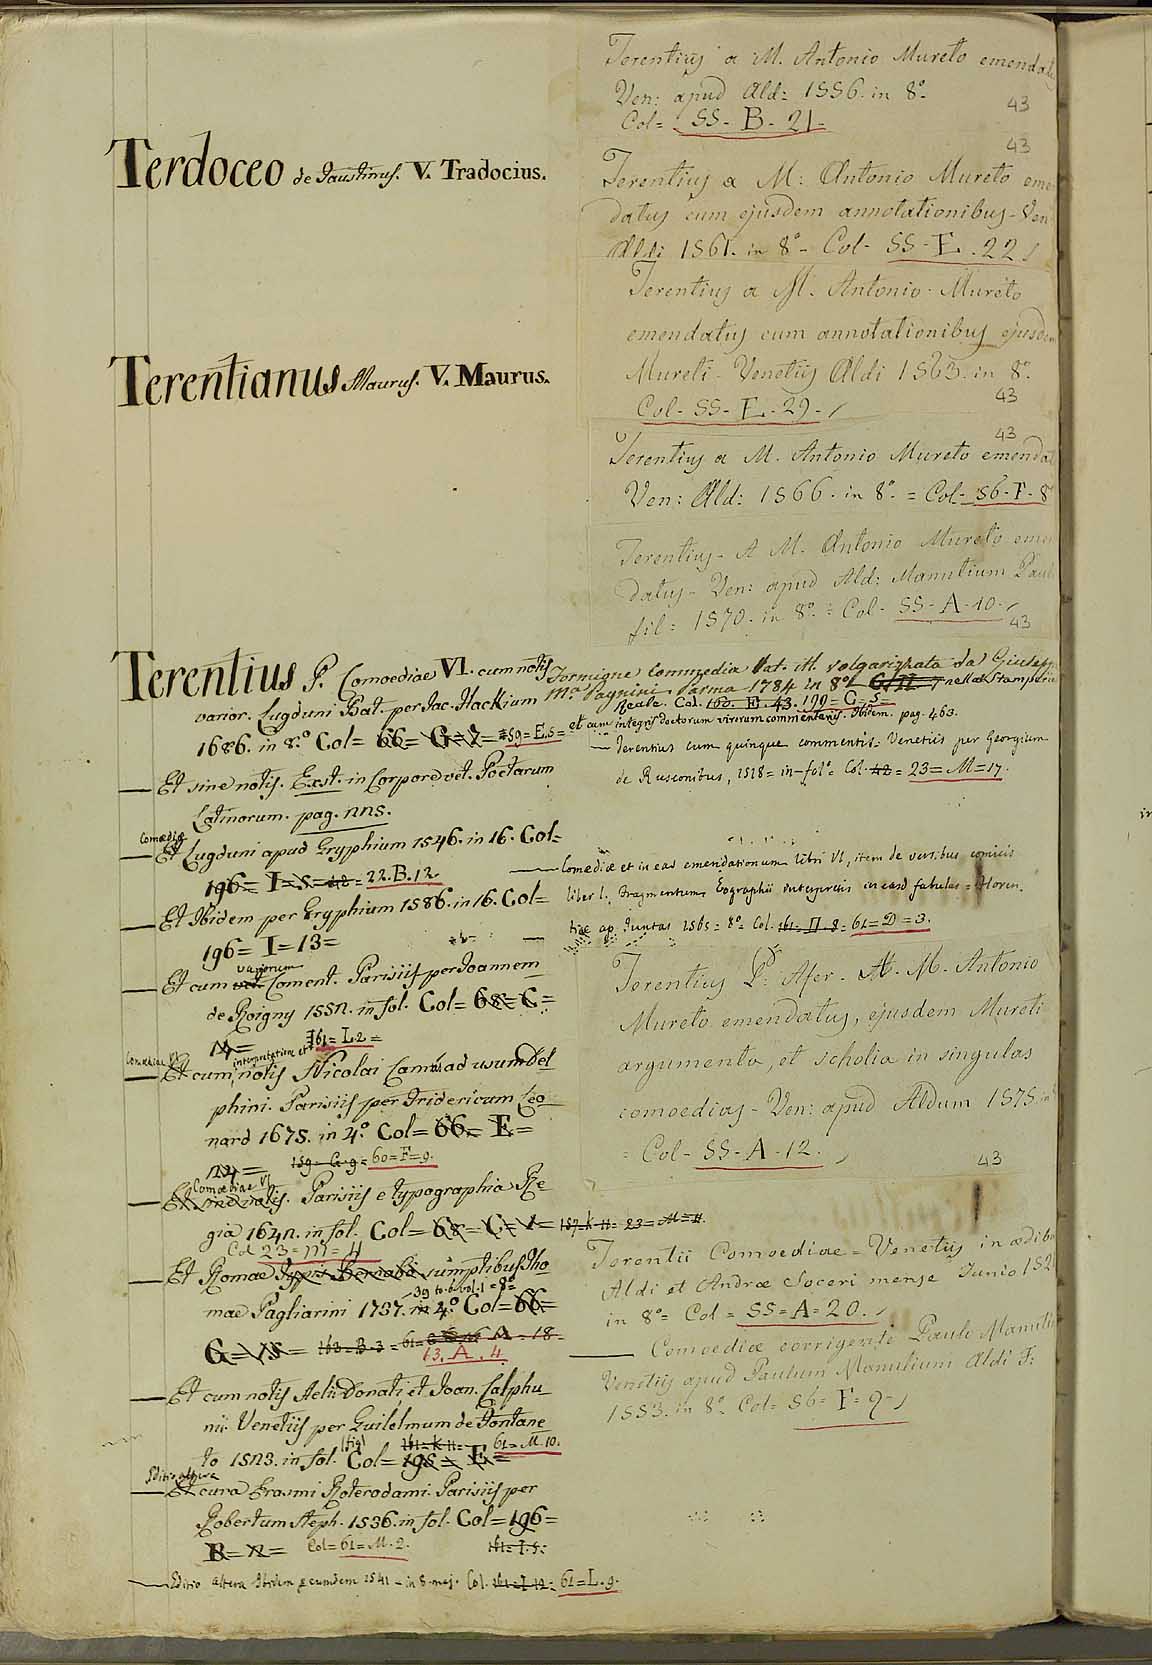 Terdoceo de Faustinus. V. Tradocius.
Terentianus Maurus. V. Maurus.
Terentius P. Comoediae VI. cum notis
varior. Lugduni Bat. per Jac. Hackium
1686. in 8.º Col= 66= G= 7= 159= E. 5=
et cum integris doctorum virorum commentariis. Ibidem. pag. 463.
— Et sine notis. Exst. in Corpore vet. Poetarum
Latinorum. pag. nns.
Comœdiæ
— Et Lugduni apud Gryphium 1546. in 16. Col=
196= I= 5= 42= 22. B. 12.
— Et Ibidem per Gryphium 1586. in 16. Col=
196= I= 13=
variorum
— Et cum vet. Coment. Parisiis per Joannem
de Roigny 1552. in fol. Col= 68= C=
14= 161= L. 2=
Comœdiae VI interpretatione et
— Et cum notis Nicolai Camus ad usum Del
phini. Parisiis per Fridericum Leo
nard 1675. in 4.º Col= 66= E=
24= 159= G. 9= 60= F= 9.
Comœdiae VI
— Et sine notis. Parisiis e typographia Re
gia 1642. in fol. Col= 68= C= 1= 157. K. 11= 23= M= 11.
Col 23= M= 4
— Et Romae Typis Bernabò sumptibus Tho
mae Pagliarini 1737. in 4.º Col= 66=
G= 15= 163= B. 3= 61= A= 18
13. A. 4
— Et cum notis Aelii Donati, et Joan. Calphu
nii Venetiis per Guilelmum de Fontane
to 1523. in fol. (fig) Col= 195= E= 161= K. 11= 61= M. 10.
Editio altera
— Et cura Erasmi Roterodami. Parisiis per
Robertum Steph. 1536. in fol. Col= 196=
B= 2= Col= 61= M. 2. 161= I. 5.
— Editio altera Ibidem per eundem 1541 – in 8. maj. Col. 161= I. 12= 61= L. 9.
Terentius a M. Antonio Mureto emendat
Ven: apud Ald: 1556. in 8º-
43
Col= SS- B- 21-
43
Terentius a M: Antonio Mureto eme
datus cum ejusdem annotationibus- Ven
Aldi 1561. in 8º- Col- SS- E. 22
Terentius a M. Antonio- Mureto
emendatus cum annotationibus ejusdem
Mureti- Venetiis Aldi 1563. in 8º.
43
Col- SS- E- 29-
43
Terentius a M. Antonio Mureto emendat
Ven: Ald: 1566. in 8º. = Col- 56- F- 8
Terentius- A M. Antonio Mureto emen
datus- Ven: apud Ald: Manutium Pauli
fil= 1570. in 8º. = Col- SS- A- 10-
43
Formione Commedia Lat. it. volgarizzata da Giuseppe
Mª Pagnini. Parma 1784 in 8º nella Stamperia
Reale. Col. 160. E. 43. 199= C= 5=
— Terentius cum quinque commentis= Venetiis per Georgium
de Rusconibus, 1518= in folº= Col. 42= 23= M= 17.
— Comœdiæ et in eas emendationum libri VI, item de versibus comicis
liber I. Fragmentum Eographii interpretis in easd fabulas= Floren.
tiae ap. Juntas 1565= 8º Col. 161= 61= D= 3.
Terentius P: Afer. A. M. Antonio
Mureto emendatus, ejusdem Mureti
argumenta, et scholia in singulas
comoedias- Ven: apud Aldum 1575. in
= Col- SS- A- 12.
43
Terentii Comoediae= Venetiis in ædib
Aldi et Andræ Soceri mense Junio 152
in 8º= Col= SS= A= 20.
— Comoediæ corrigente Paulo Manutio
Venetiis apud Paulum Manutium Aldi F:
1553. in 8º Col= 56= F= 9-